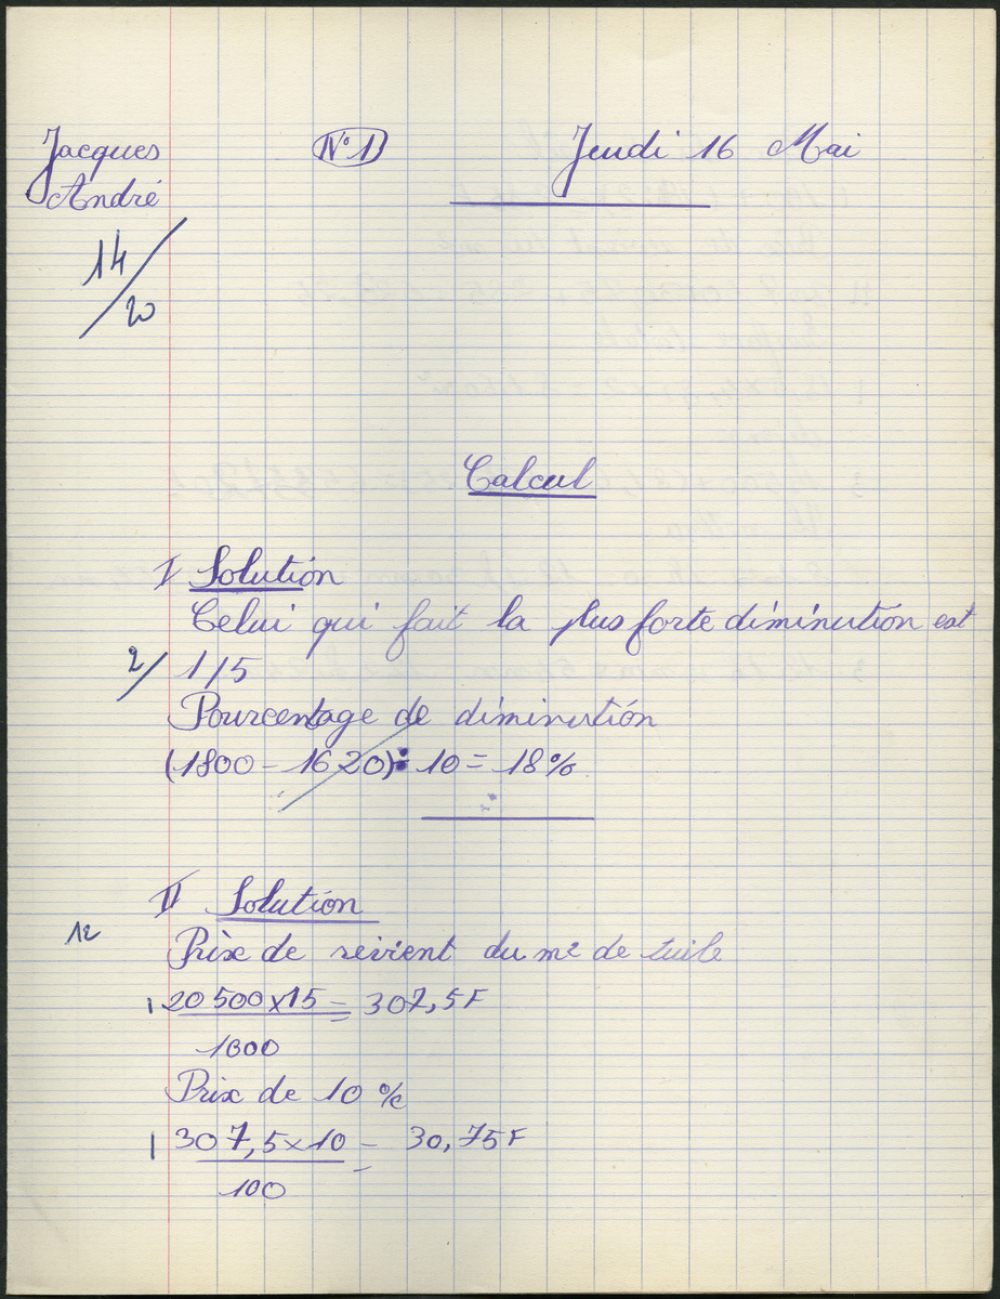 Jacques N°1 Jeudi 16 Mai
André
14/20
Calcul
I Solution
Celui qui fait la plus forte diminution est
2/ 1/5
Pourcentage de diminution
(1800 - 1620) : 10 = 18%
II Solution
12
Prix de revient du m² de tuile
1 20 500 x 15 = 307,5 F
1000
Prix de 10 %
1 307,5 x 10 = 30,75 F
100